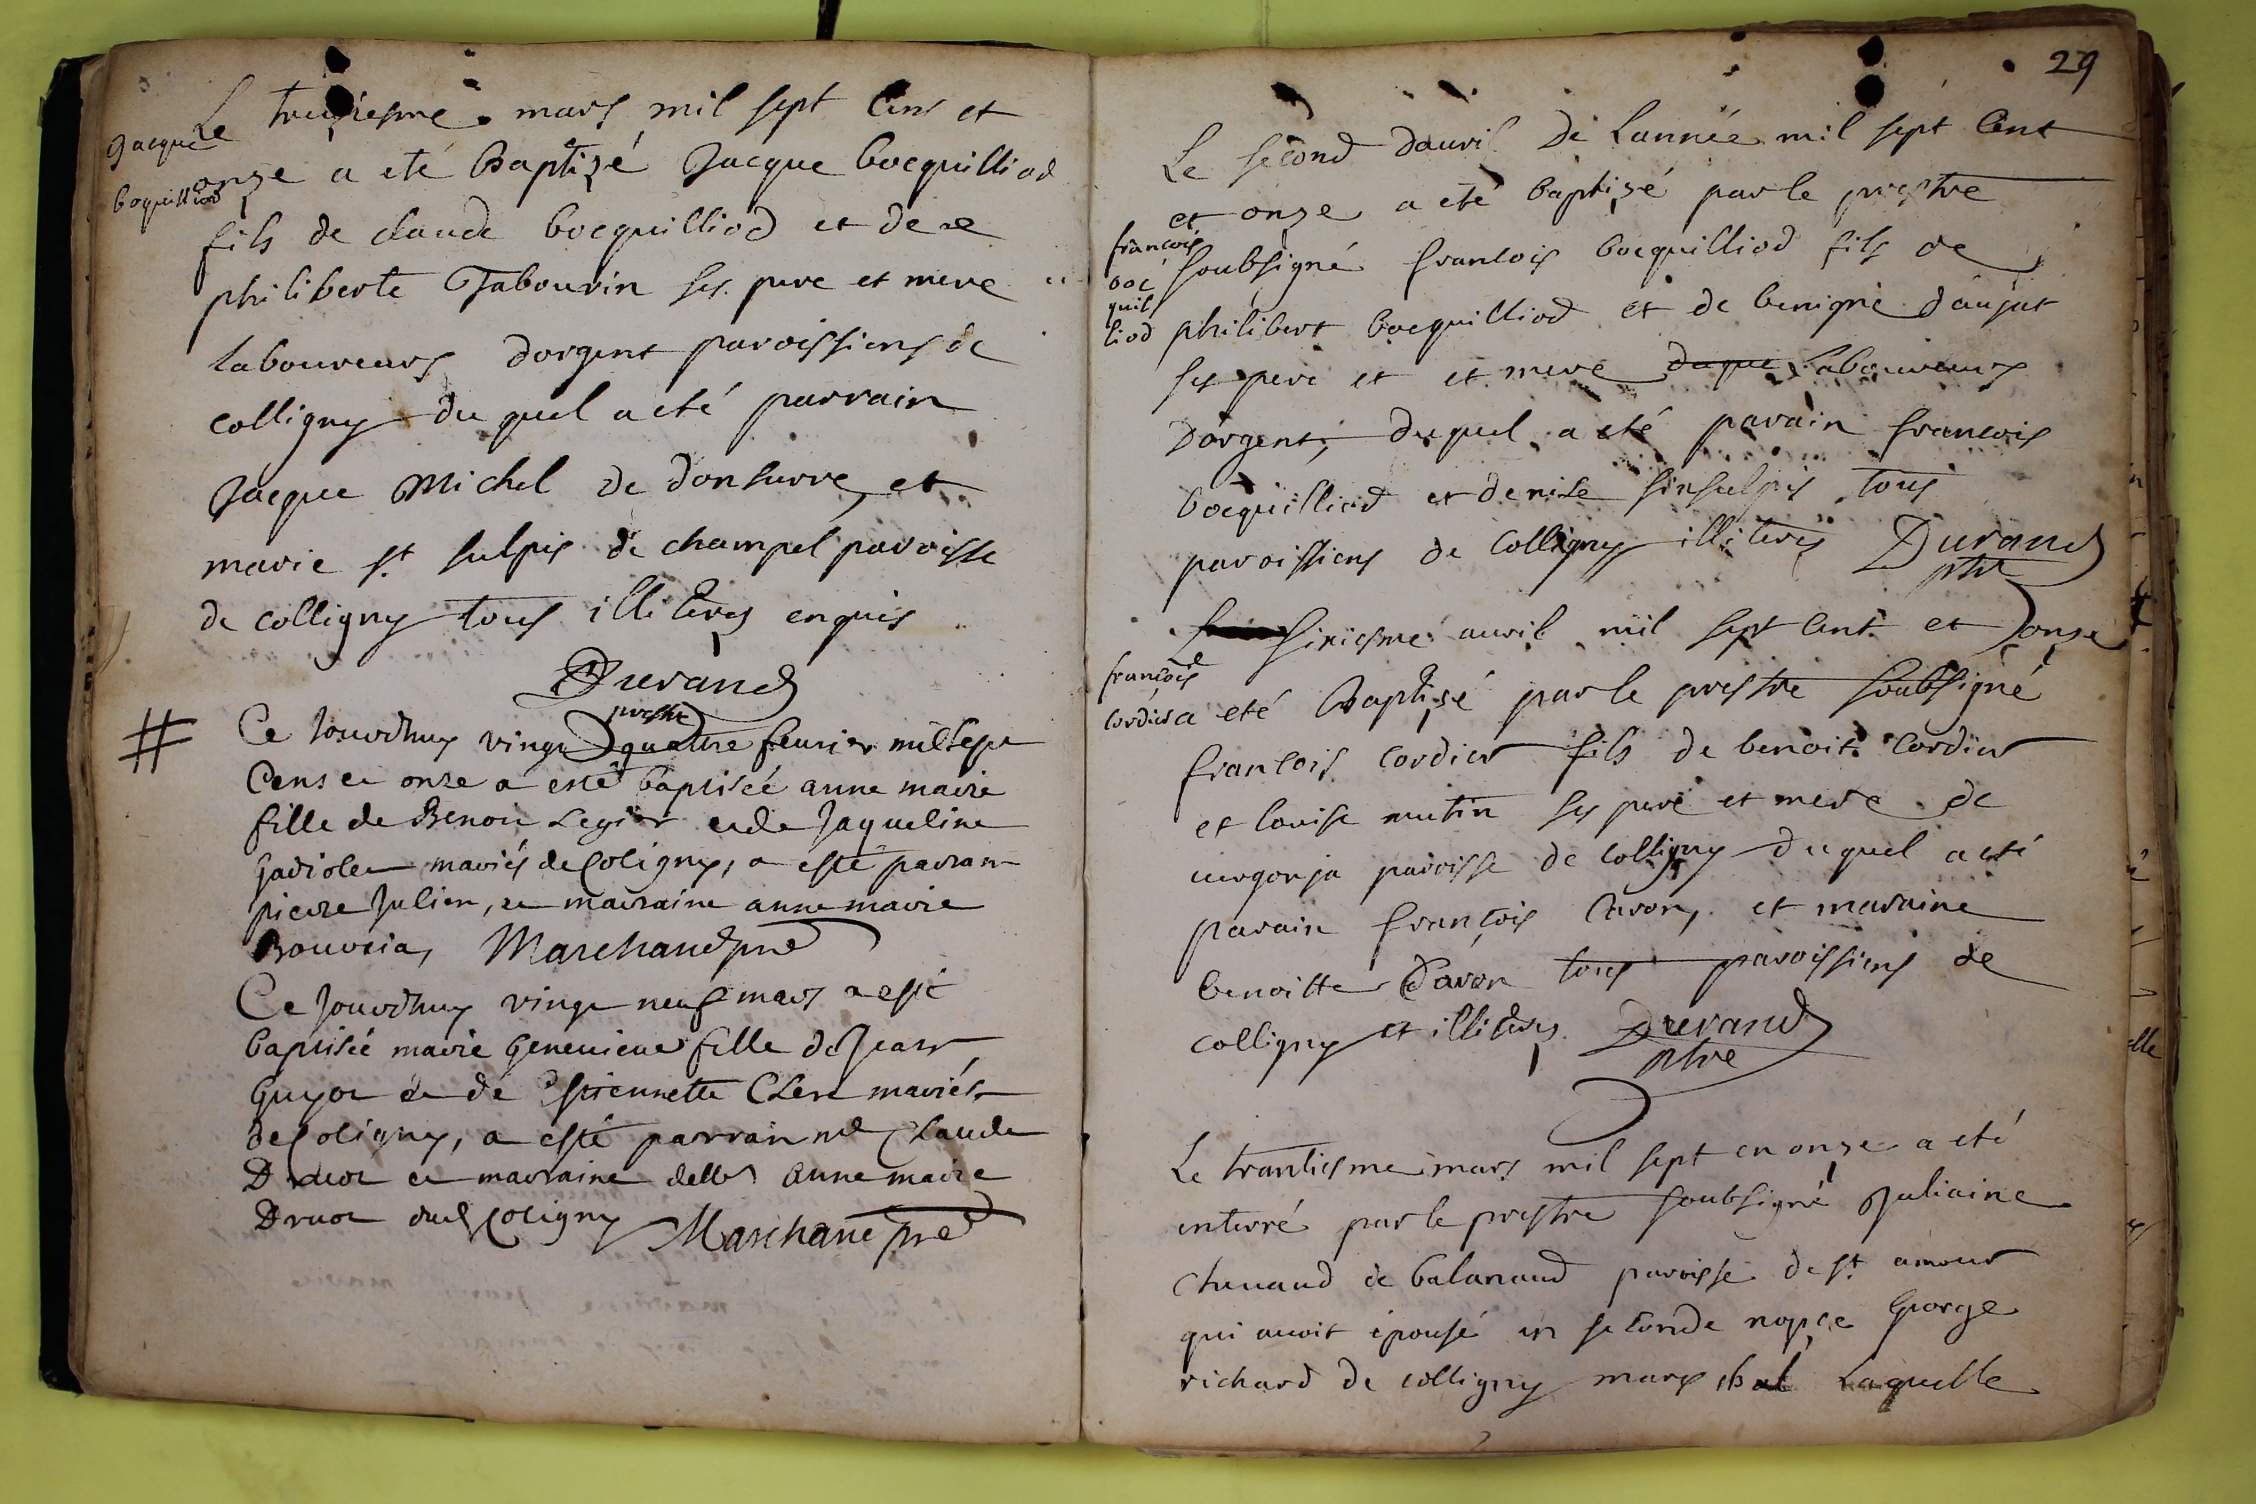 Jacque
bocquilliod
Le treiziesme mars mil sept cens et
onze a eté Baptizé Jacque bocquilliod
fils de claude bocquilliod et de
philiberte Tabourin ses pere et mere
laboureurs dorgent paroissiens de
colligny du quel a eté parrain
Jacque Michel de donsurre, et
marie st sulpis de champel paroisse
de colligny tous illiteres enquis
Durand
prestre
Ce Jourdhuy vingt quatre feurier mil sept
Cens et onze a esté baptisée anne marie
fille de Benoit Legier et de Jaqueline
mariés de Coligny, a esté parrain
pierre Julien, et marraine anne marie
Marchand pre
Ce Jourdhuy vingt neuf mars a esté
baptisée marie Genevieve fille de Jean
Guyot et de Estiennette Clerc mariés
de Coligny, a esté parrain Claude
Druot et marraine delle anne marie
Druot dud Coligny Marchand pre
29
Le second dauril de Lannée mil sept cent
et onze a eté baptizé par le prestre
francois
boc
quil
liod
soubsigné francois bocquilliod fils de
philibert bocquilliod et de benigne daujat
ses pere et et mere laboureurs
Dorgent, duquel a eté parain francois
bocquilliod et denise sinsulpis tous
paroissiens de Colligny illiteres Durand
ptre
sixiesme auril mil sept cent et onze
francois
cordier
a eté Baptisé par le prestre soubsigné
francois cordier fils de benoit cordier
et louise mutin ses pere et mere de
paroisse de colligny duquel a eté
parain françois Caron, et maraine
benoitte Davon tous paroissiens de
colligny et illiteres Durand
ptre
Le trantiesme mars mil sept en onze a eté
enterré par le prestre soubsigné Juliaine
chunaud de balanaud paroisse de st amour
qui auoit épousé en seconde nopce George
richard de colligny mareschal Laquelle